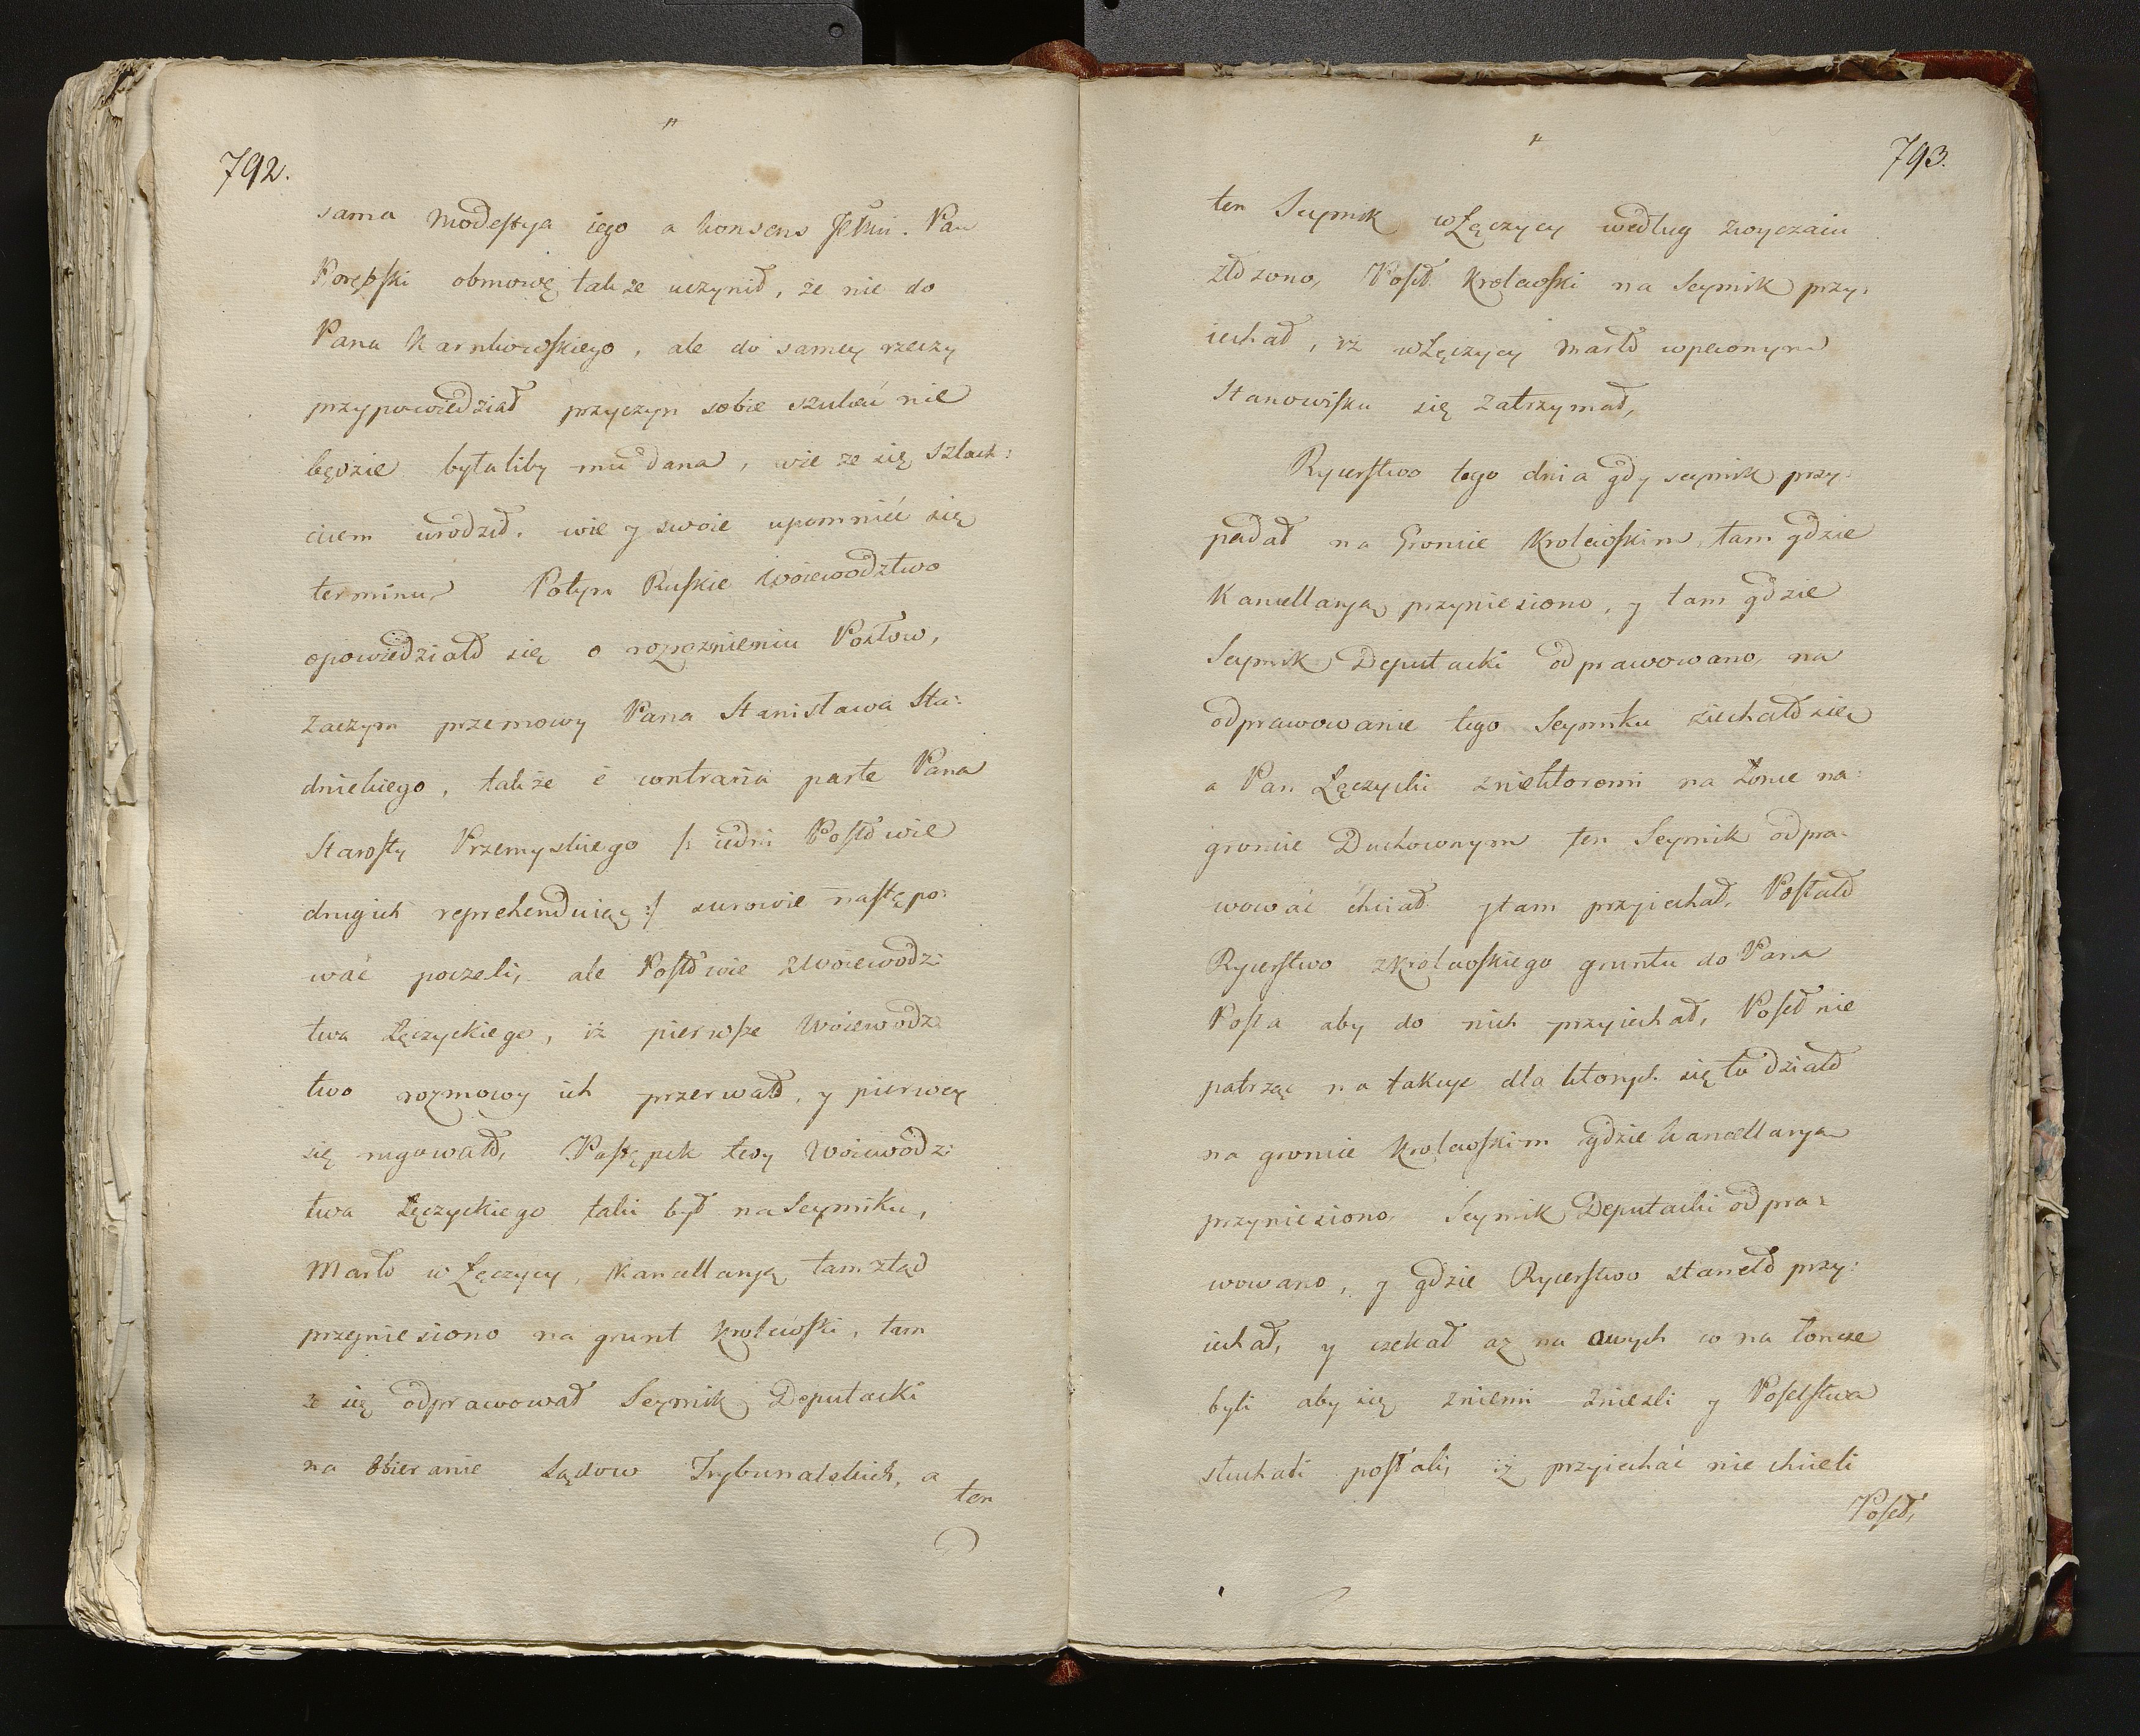 792.
sama modestya iego a konsens
Porębski obmowę takze uczynił, że nie do
Pana Karnkowskiego, ale do samey rzeczy
przypowiedział przyczyn sobie szukać nie
będzie bytaliby mu dana, wie ze się szlach:
ciem urodził. wie y swoie upomnieć się
terminu, Potym Ruskie woiewodztwo
opowiedziało się o rozroznieniu Posłow,
zaczym przemowy Pana Stanisława Sta:
dnickiego, także è contraria parte Pana
Starosty Przemyskiego /: iedni Posłowie
drugich reprehenduiąc :/ surowie następo:
wać poczeli, ale Posłowie Zwoiewodzi
twa Łęczyckiego, iż pierwsze Woiewodz
two rozmowy ich przerwało, y pierwey
się rugowało, Postępek tery Woiewodz:
twa Łęczyckiego taki był na Seymiku,
Marło w Łęczycy, Kancellaryą tamztąd
przeniesiono na grunt krolewski, tam
ze się odprawował Seymik Deputacki
na obieranie Sądow Trybunalskich, a
ten
793.
ten Seymik w Łęczycy według zwyczaiu
złozono, Poseł Krolewski na Seymik przy:
iechał, iż w Łęczycy marło wpewnym
Stanowisku się zatrzymał,
Rycerstwo tego dnia gdy seymik przy:
padał na Groncie Krolewskim, tam gdzie
Kancellaryą przyniesiono, y tam gdzie
Seymik Deputacki odprawowano, na
odprawowanie tego Seymiku ziechało się
a Pan Łęczycki zniektoremi na łonce na:
groncie Duchownym ten Seymik odpra:
wować chciał ytam przyiechał. Posłało
Rycerstwo zKrolewskiego gruntu do Pana
Posła aby do nich przyiechał, Poseł nie
patrząc na takye dla ktorych się to działo
na groncie Krolewskim gdzie kancellarya
przyniesiono, Seymik Deputacki odpra:
wowano, y gdzie Rycerstwo staneło przy:
iechał, y czekał az na owych co na łonce
byli aby się zniemi znieśli y Poselstwa
słuchali posłali, iż przyiechać nie chcieli
Poseł,